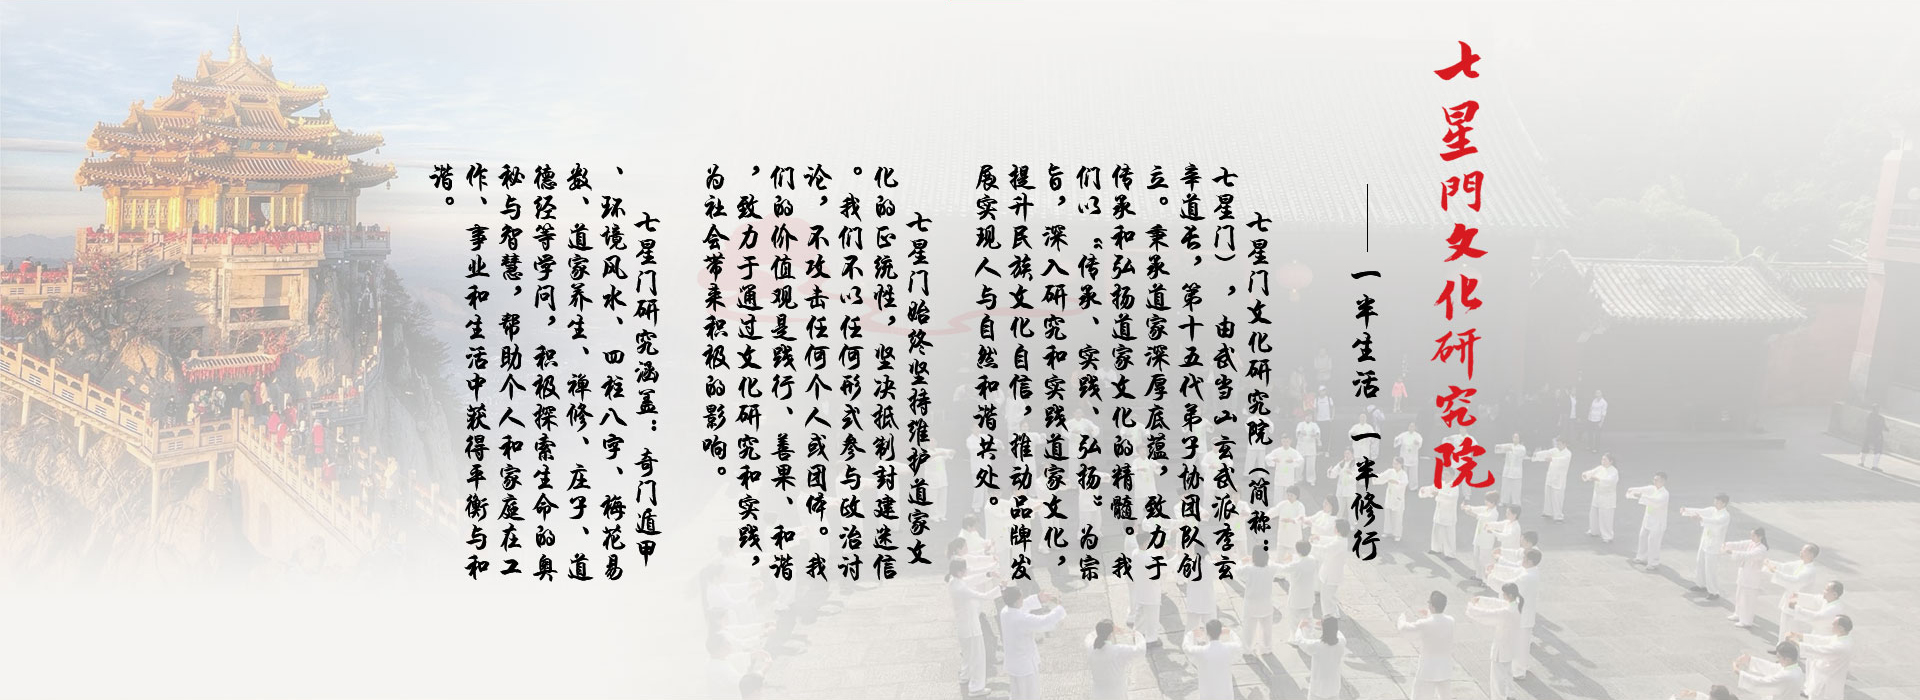 七星門文化研究院
——一半生活 一半修行
七星门文化研究院（简称：
七星门），由武当山玄武派李玄
辛道长，第十五代弟子协团队创
立。秉承道家深厚底蕴，致力于
传承和弘扬道家文化的精髓。我
们以“传承、实践、弘扬”为宗
旨，深入研究和实践道家文化，
提升民族文化自信，推动品牌发
展实现人与自然和谐共处。
七星门始终坚持维护道家文
化的正统性，坚决抵制封建迷信
。我们不以任何形式参与政治讨
论，不攻击任何个人或团体。我
们的价值观是践行、善果、和谐
，致力于通过文化研究和实践，
为社会带来积极的影响。
七星门研究涵盖：奇门遁甲
、环境风水、四柱八字、梅花易
数、道家养生、禅修、庄子、道
德经等学问，积极探索生命的奥
秘与智慧，帮助个人和家庭在工
作、事业和生活中获得平衡与和
谐。